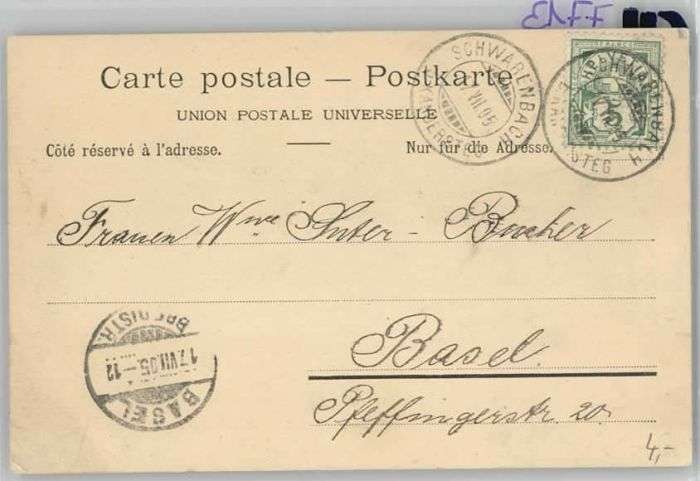 ENFF
Carte postale — Postkarte
UNION POSTALE UNIVERSELLE
Côté réservé à l'adresse.
Nur für die Adresse.
SCHWARENBACH
VII 05
SCHWARENBACH
STEG
Frauen Wwe Suter - Bucher
BASEL
17.VII.05.-12
Basel.
Pfeffingerstr. 20.
4,-